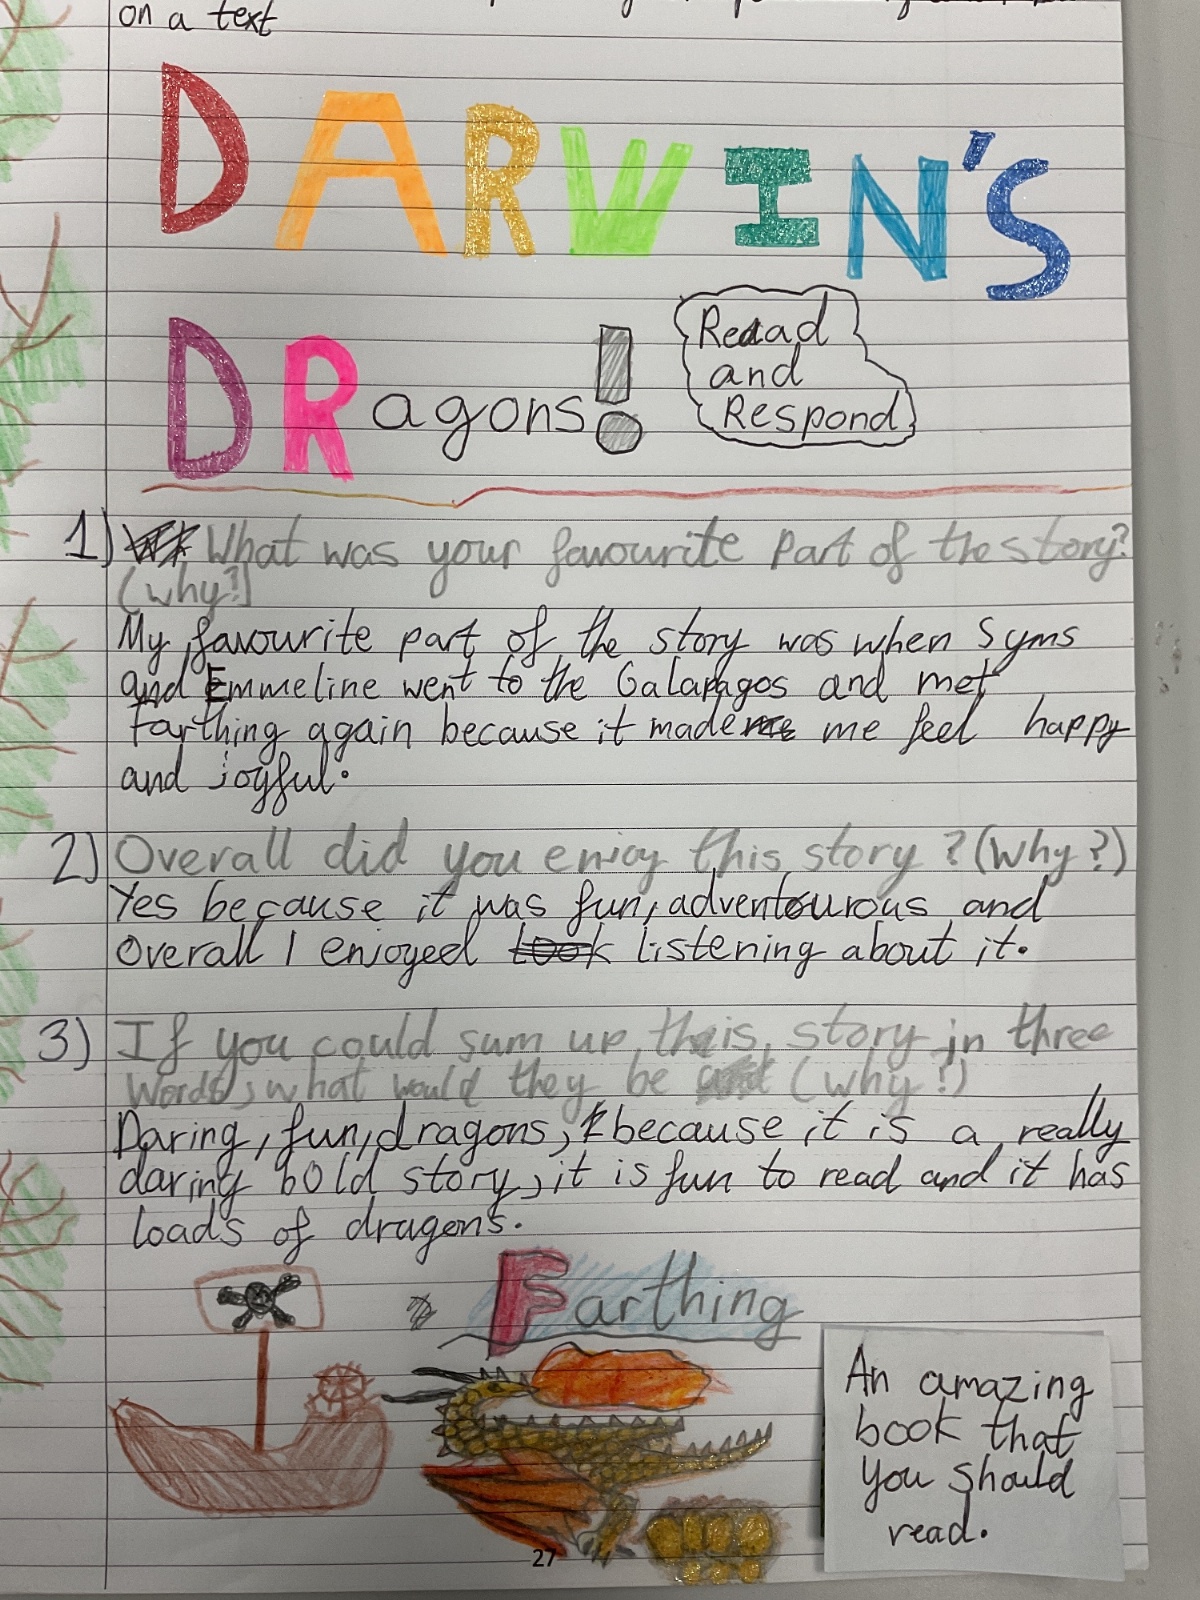 on a text
DARWIN'S
DRagons!
Read
and
Respond
1) What was your favourite part of the story?
(why?)
My favourite part of the story was when Syms
and Emmeline went to the Galapagos and met
Farthing again because it made me feel happy
and joyful.
2) Overall did you enjoy this story? (Why?)
Yes because it was fun, adventourous and
Overall I enjoyed listening about it.
3) If you could sum up this story in three
words, what would they be (why?)
Daring, fun, dragons, because it is a really
daring bold story, it is fun to read and it has
loads of dragons.
Farthing
An amazing
book that
you should
read.
27